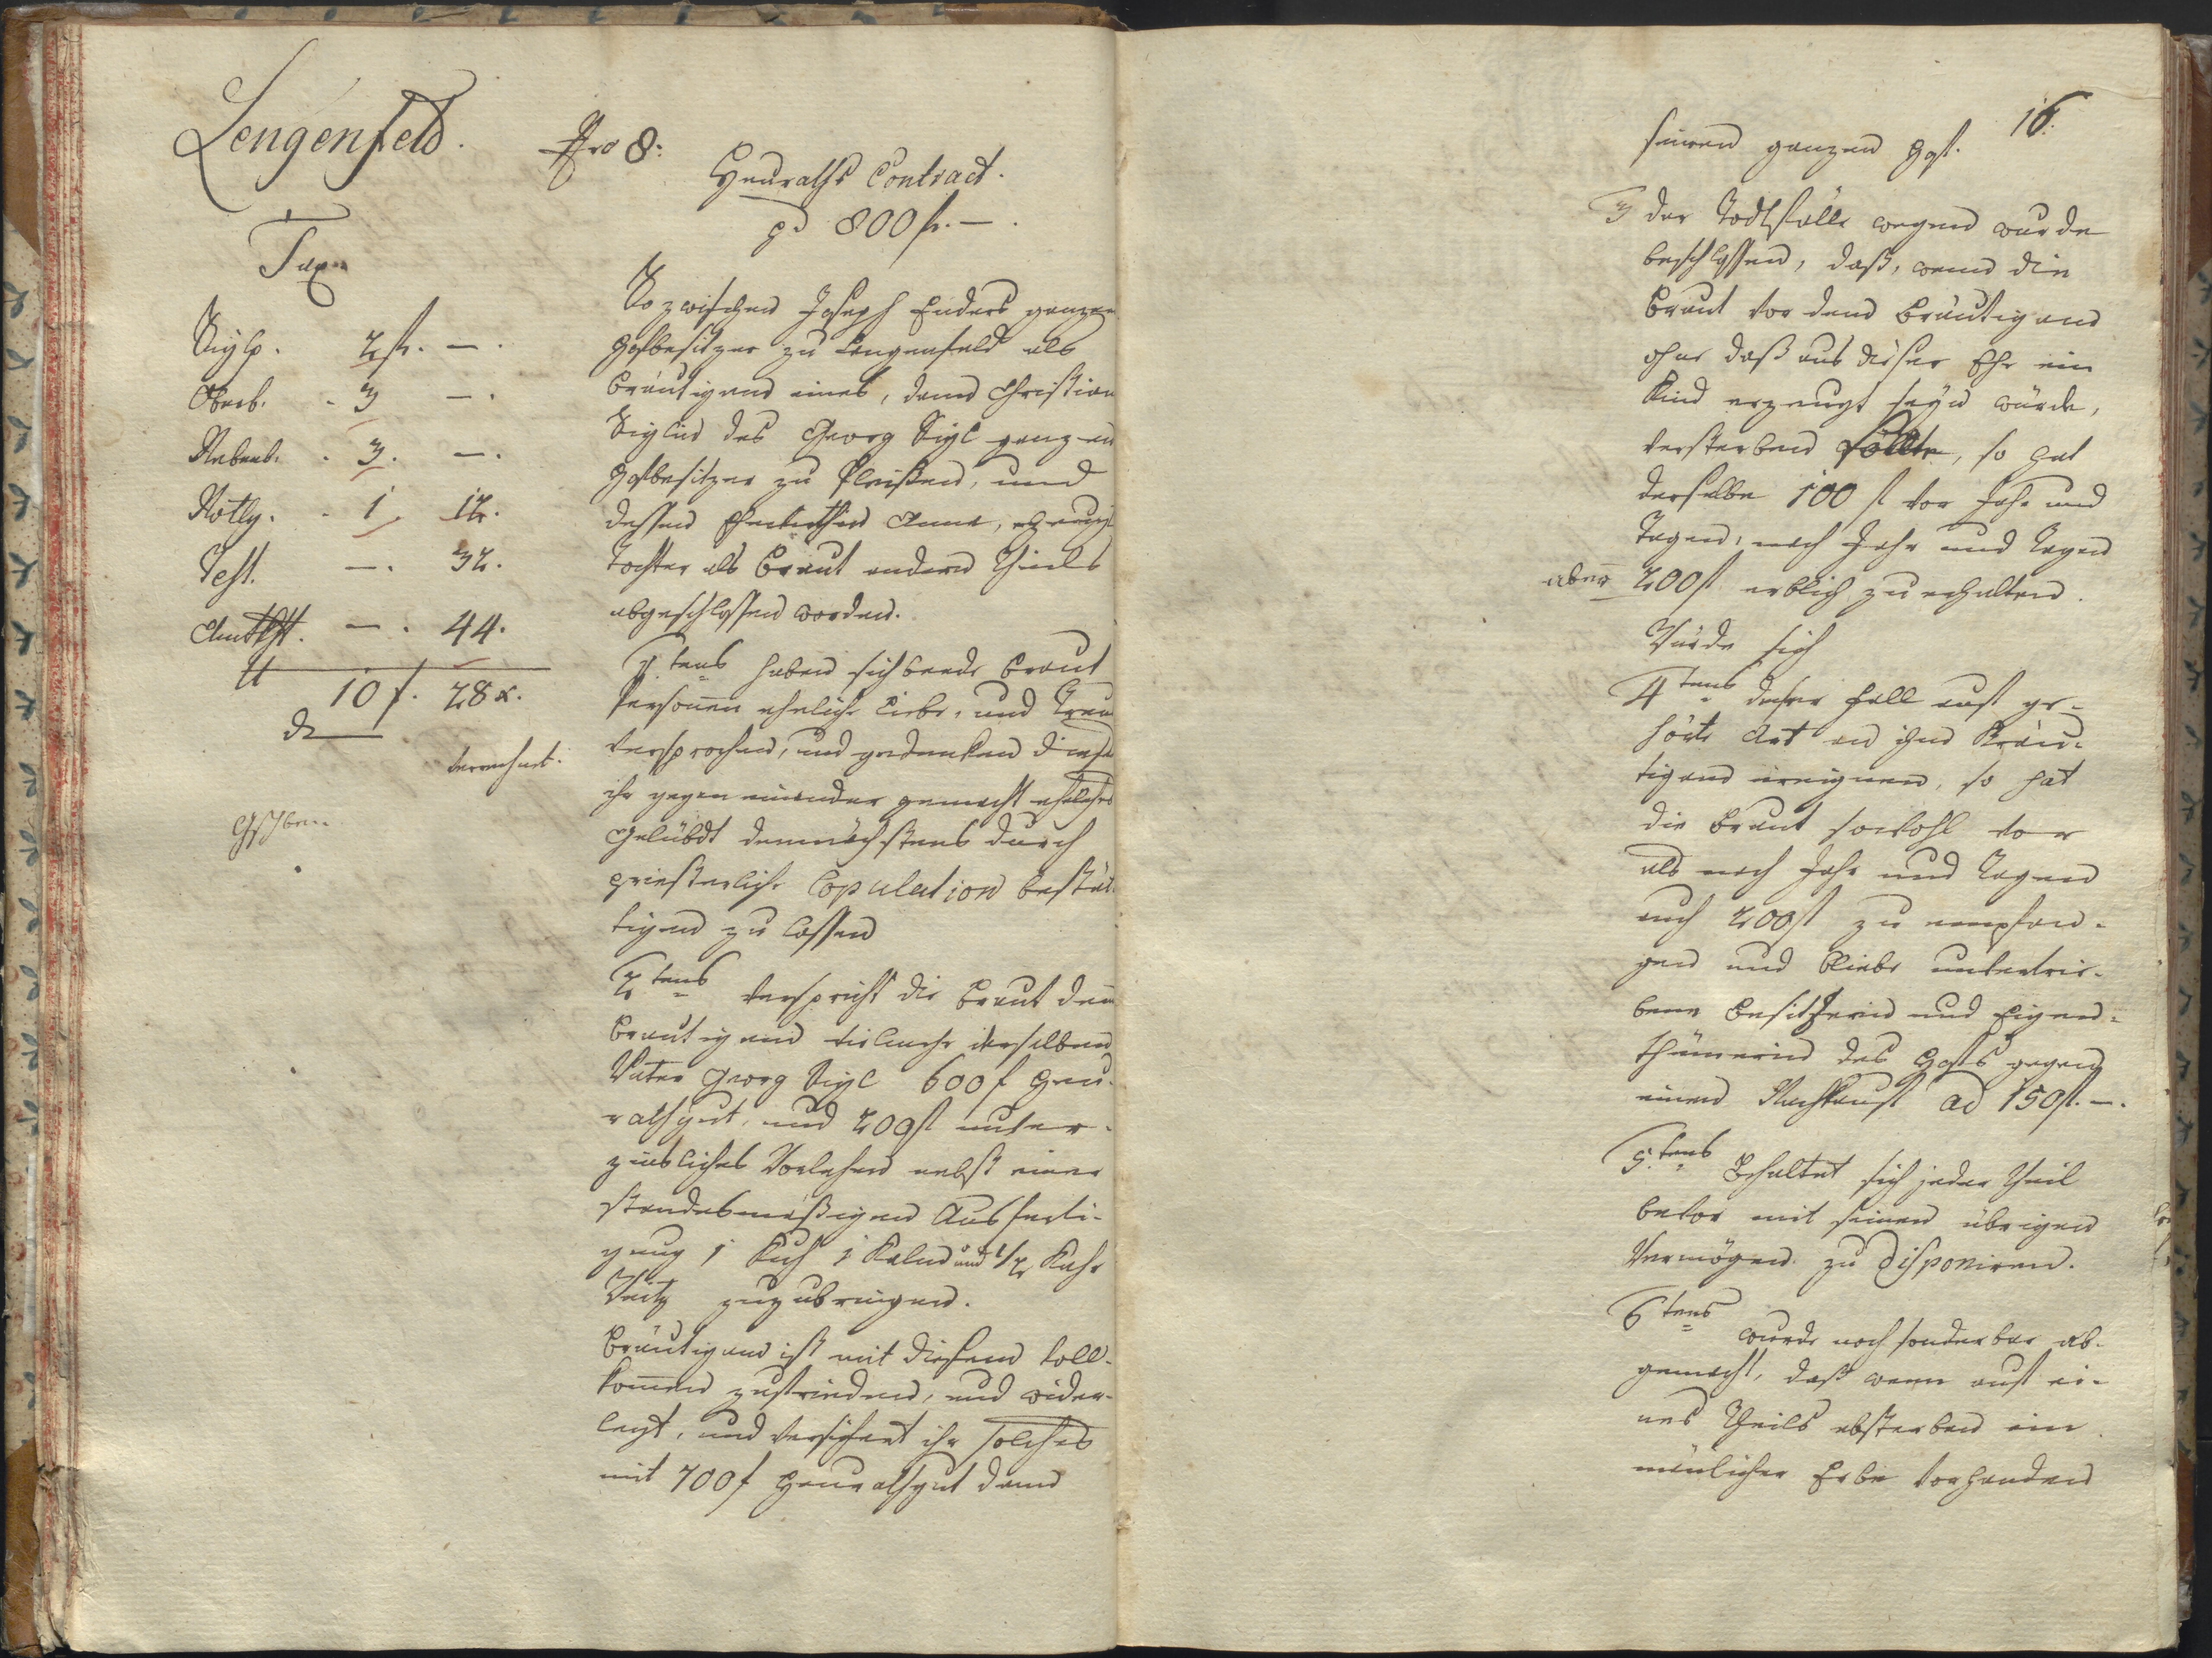 Lengenfeld.
Nro 8:
Heuraths Contract.
pr 800 fl. —.
Tax
Siglp. 2 fl. —.
Oberb. . 3 —.
Nebenb. . 3. —.
Notlg. . 1 12.
Test. —. 32.
Amtst. —. 44.
10 f. 28 x.
verrechnet.
So zwischen Joseph Enders ganzen
Hofbesitzer zu Lengenfeld als
Bräutigam eines, dann Christina
Siglin des Georg Sigl ganzen
Hofbesitzer zu Pleißen, und
dessen Ehewirthin Anna, erzeugt
Tochter als Braut andern Theils
abgeschlossen worden.
1tens haben sich beede Braut
Personen eheliche Liebe, und Treu
versprochen, und gedenken diese
ihr gegen einander gemacht eheliches
Gelübdt demnächstens durch
priesterliche Copulation bestät-
tigen zu lassen
2tens verspricht die Braut dem
Bräutigam vielmehr derselben
Vater Georg Sigl 600 f Heu-
rathgut, und 200 fl unver-
zinsliches Vorlehen nebst einer
standesmäßigen Ausferti-
gung 1 Kuh 1 Kalm und 1/2 Kuhr
zuzubringen.
Bräutigam ist mit diesem voll-
kommen zufrieden, und wider-
legt, und versichert ihr solches
mit 700 f Heurathgut dann
16.
seinen ganzen Hof.
3 der Todtfälle wegen wurde
beschlossen, daß, wenn die
Braut vor dem Bräutigam
ohne daß aus dieser Ehe ein
Kind erzeugt seyn würde,
versterben sollte, so hat
derselbe 100 fl vor Jahr und
Tagen, nach Jahr und Tagen
aber 200 fl erblich zu erhalten.
Würde sich
4tens dieser Fall auf ge-
hörte Art an ihm Bräu-
tigam ereignen, so hat
die Braut sowohl vor
als nach Jahr und Tagen
auch 200 fl zu empfan-
gen und bliebe unvertrie-
bene Besitzerin und Eigen-
thümerin des Hofs gegen
einen Nachkauf ad 150 fl. —.
5tens Behaltet sich jeder Theil
bevor mit seinen übrigen
Vermögen zu disponiren.
6tens wurde noch sonderbar ab-
gemacht, daß wenn auf ei-
nes Theils absterben ein
mänlicher Erbe vorhanden